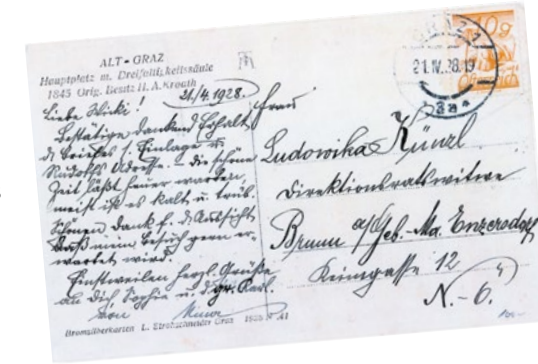 ALT-GRAZ
Hauptplatz m. Dreifaltigkeitssäule
1845 Orig. Besitz H. A. Kroath
21/4.1928.
Liebe Wicki!
Bestätige dankend Erhalt
d. Briefes s. Einlage u.
Rudolfs Adresse. – die schöne
Zeit läßt heuer warten,
meist ist es kalt u. trüb.
Schönen Dank f. d. Aussicht
daß mein Besuch gern er-
wartet wird.
Einstweilen herzl. Grüße
an Dich, Sophie u. Karl.
von
Bromsilberkarten L. Strohschneider Graz
GRAZ 1
21.IV.28.19
*3a*
10g
Frau
Ludowika Künzl
Direktionsratswitwe
Brunn a/Geb.-Ma. Enzersdorf
Keimgasse 12
N.-Ö.